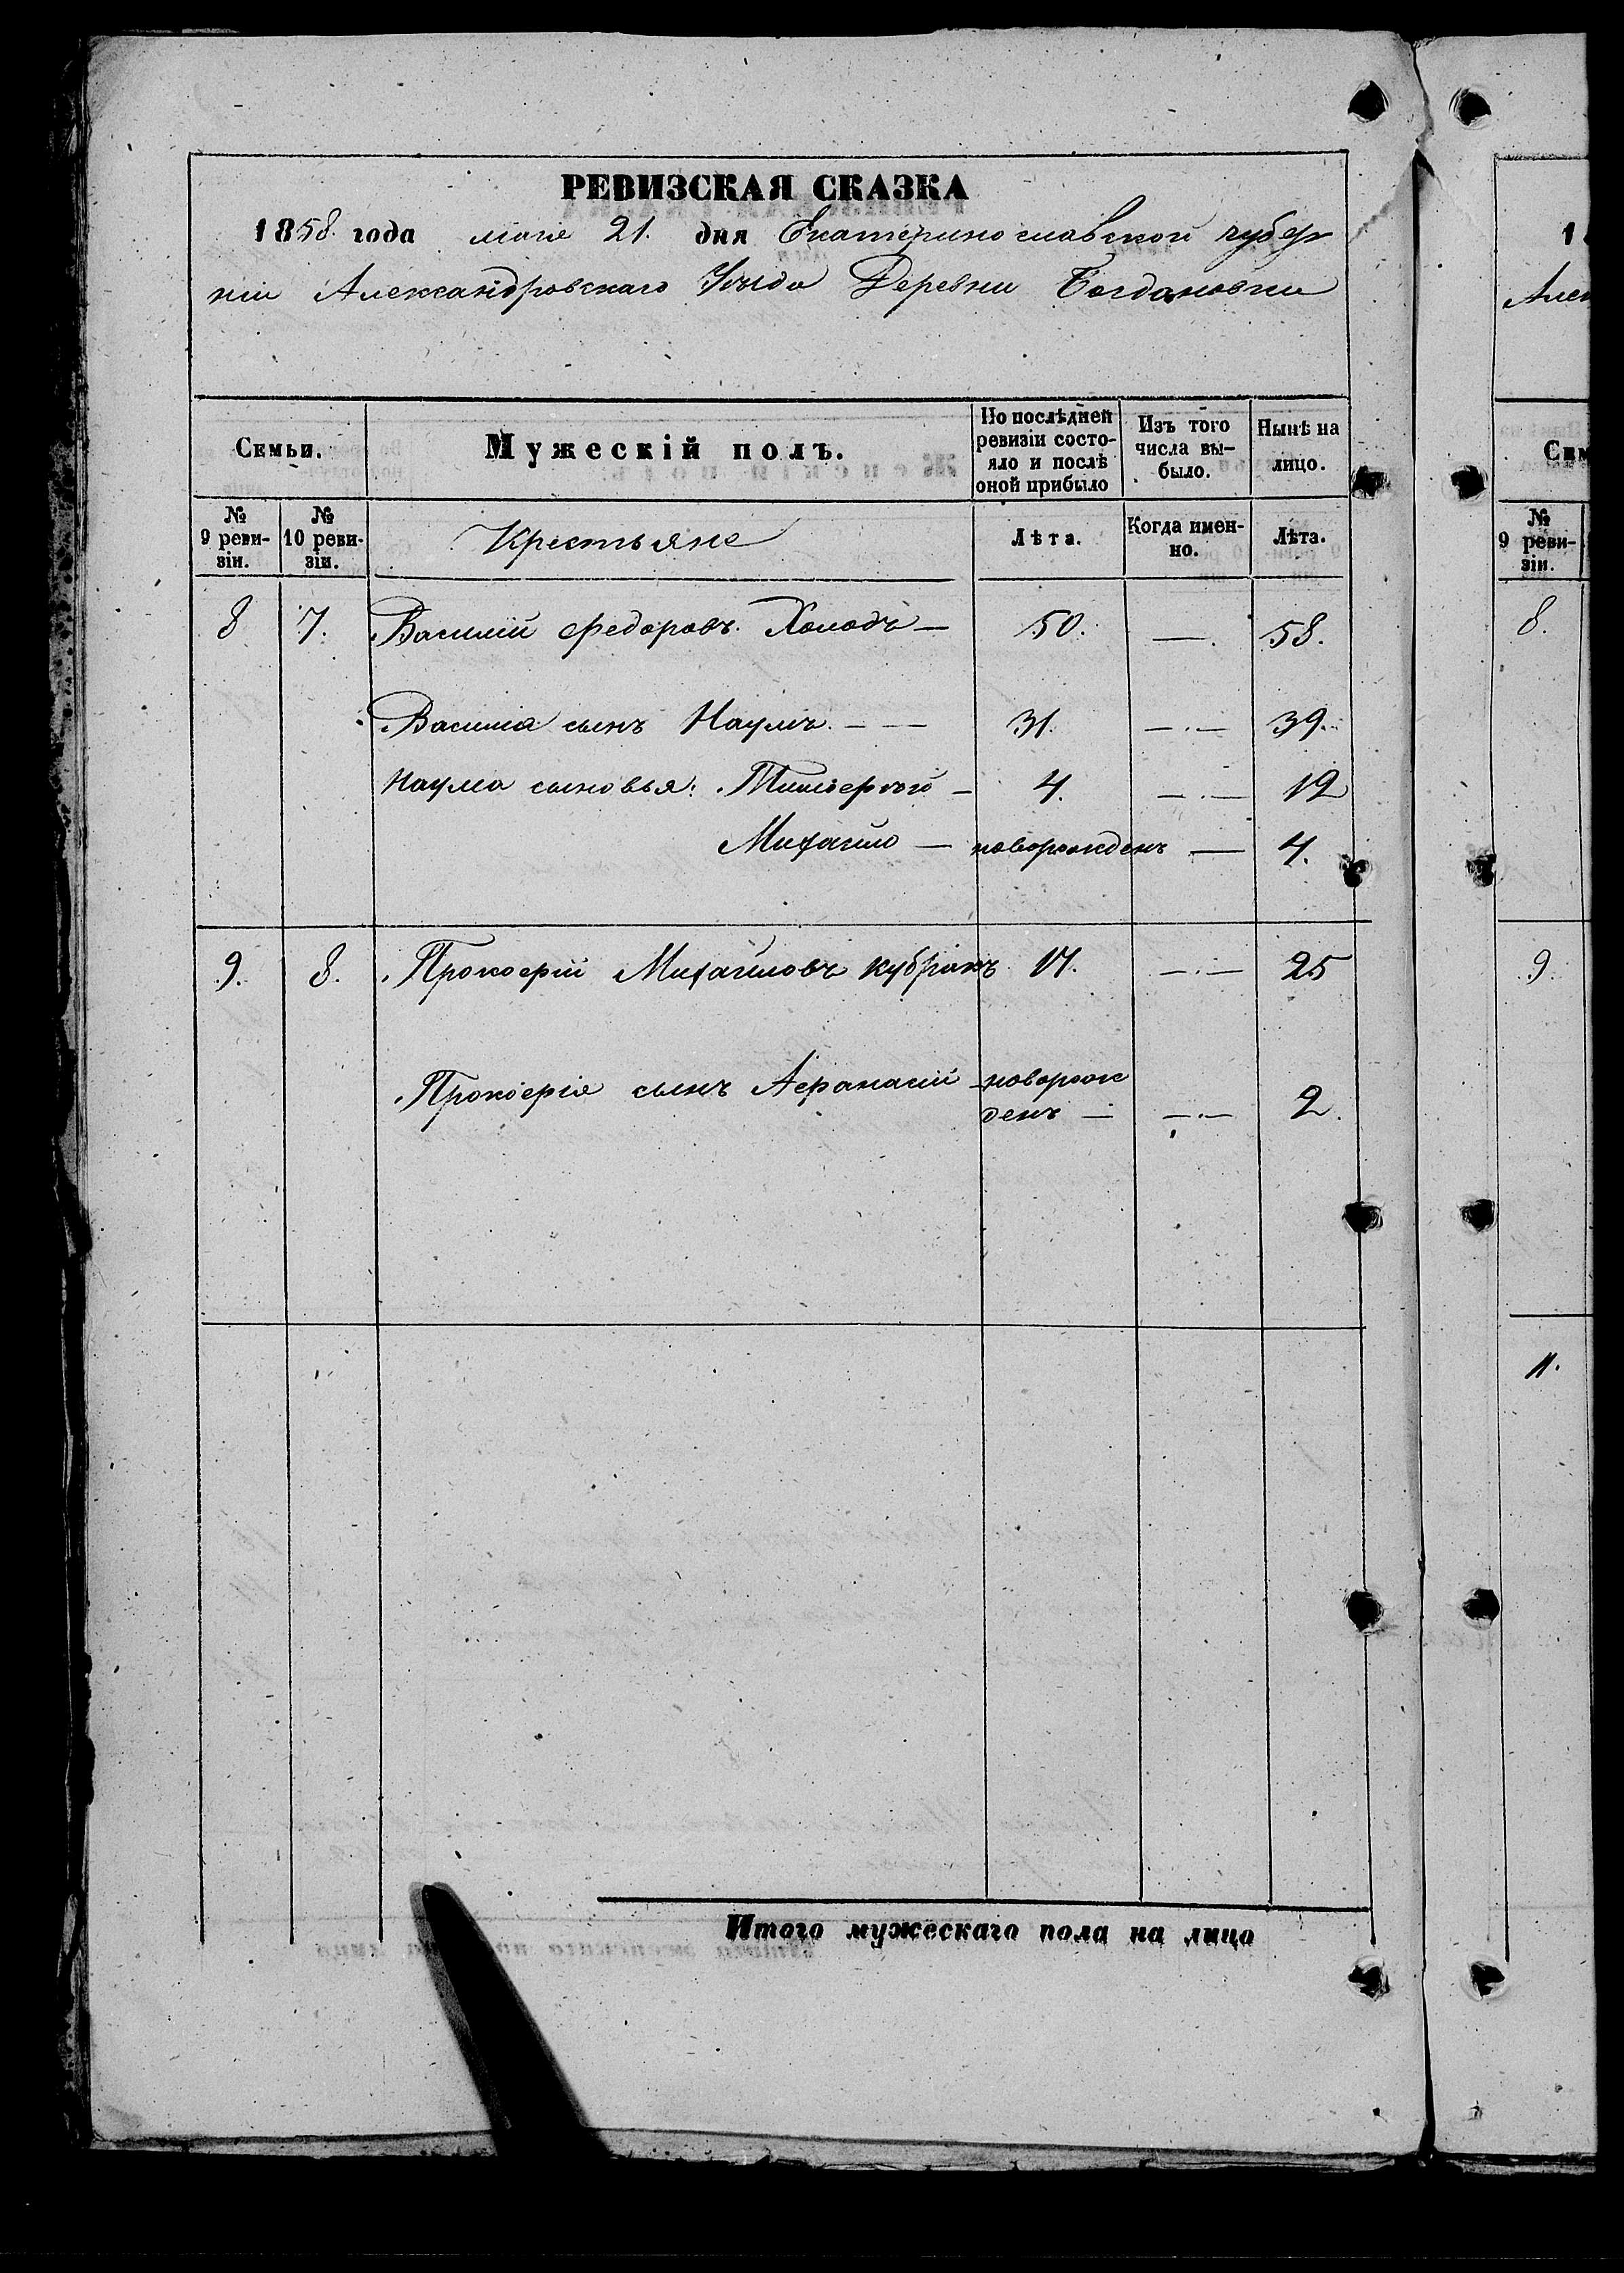 РЕВИЗСКАЯ СКАЗКА
1858 года мая 21. дня Екатеринославской губер
ніи Александровскаго Уѣзда Деревни Богдановки
Семьи.
Мужескій полъ.
По послѣдней ревизіи состо-
яло и послѣ
оной прибыло
Изъ того
числа вы-
было.
Нынѣ на
лицо.
№
9 реви-
зіи.
№
10 реви-
зіи.
Крестьяне
Лѣта.
Когда имен-
но.
Лѣта.
8 7. Василій Федоровъ Холодъ — 50. — 58.
Василія сынъ Наумъ. — — 31. — 39.
Наума сыновья: Тимофей — 4. — 12
Михайло — новорожденъ — 4.
9. 8. Прокофій Михайловъ Кубракъ 17. — 25
Прокофія сынъ Афанасій новорож
денъ — — 2.
Итого мужескаго пола на лицо
1
Алек
Сем
№
9 реви-
зіи.
8.
9.
11.